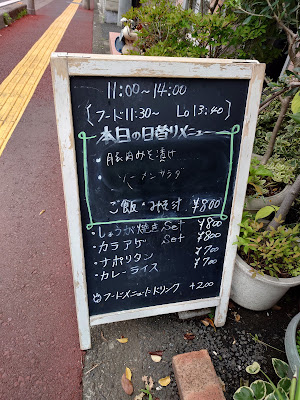 11:00～14:00
(フード11:30～ Lo 13:40)
本日の日替りメニュー
・豚肉みそ漬け
ソーメンサラダ
ご飯・みそ汁 ¥800
・しょうが焼き Set ¥800
・カラアゲ Set ¥800
・ナポリタン ¥700
・カレーライス ¥700
フードメニューにドリンク +200